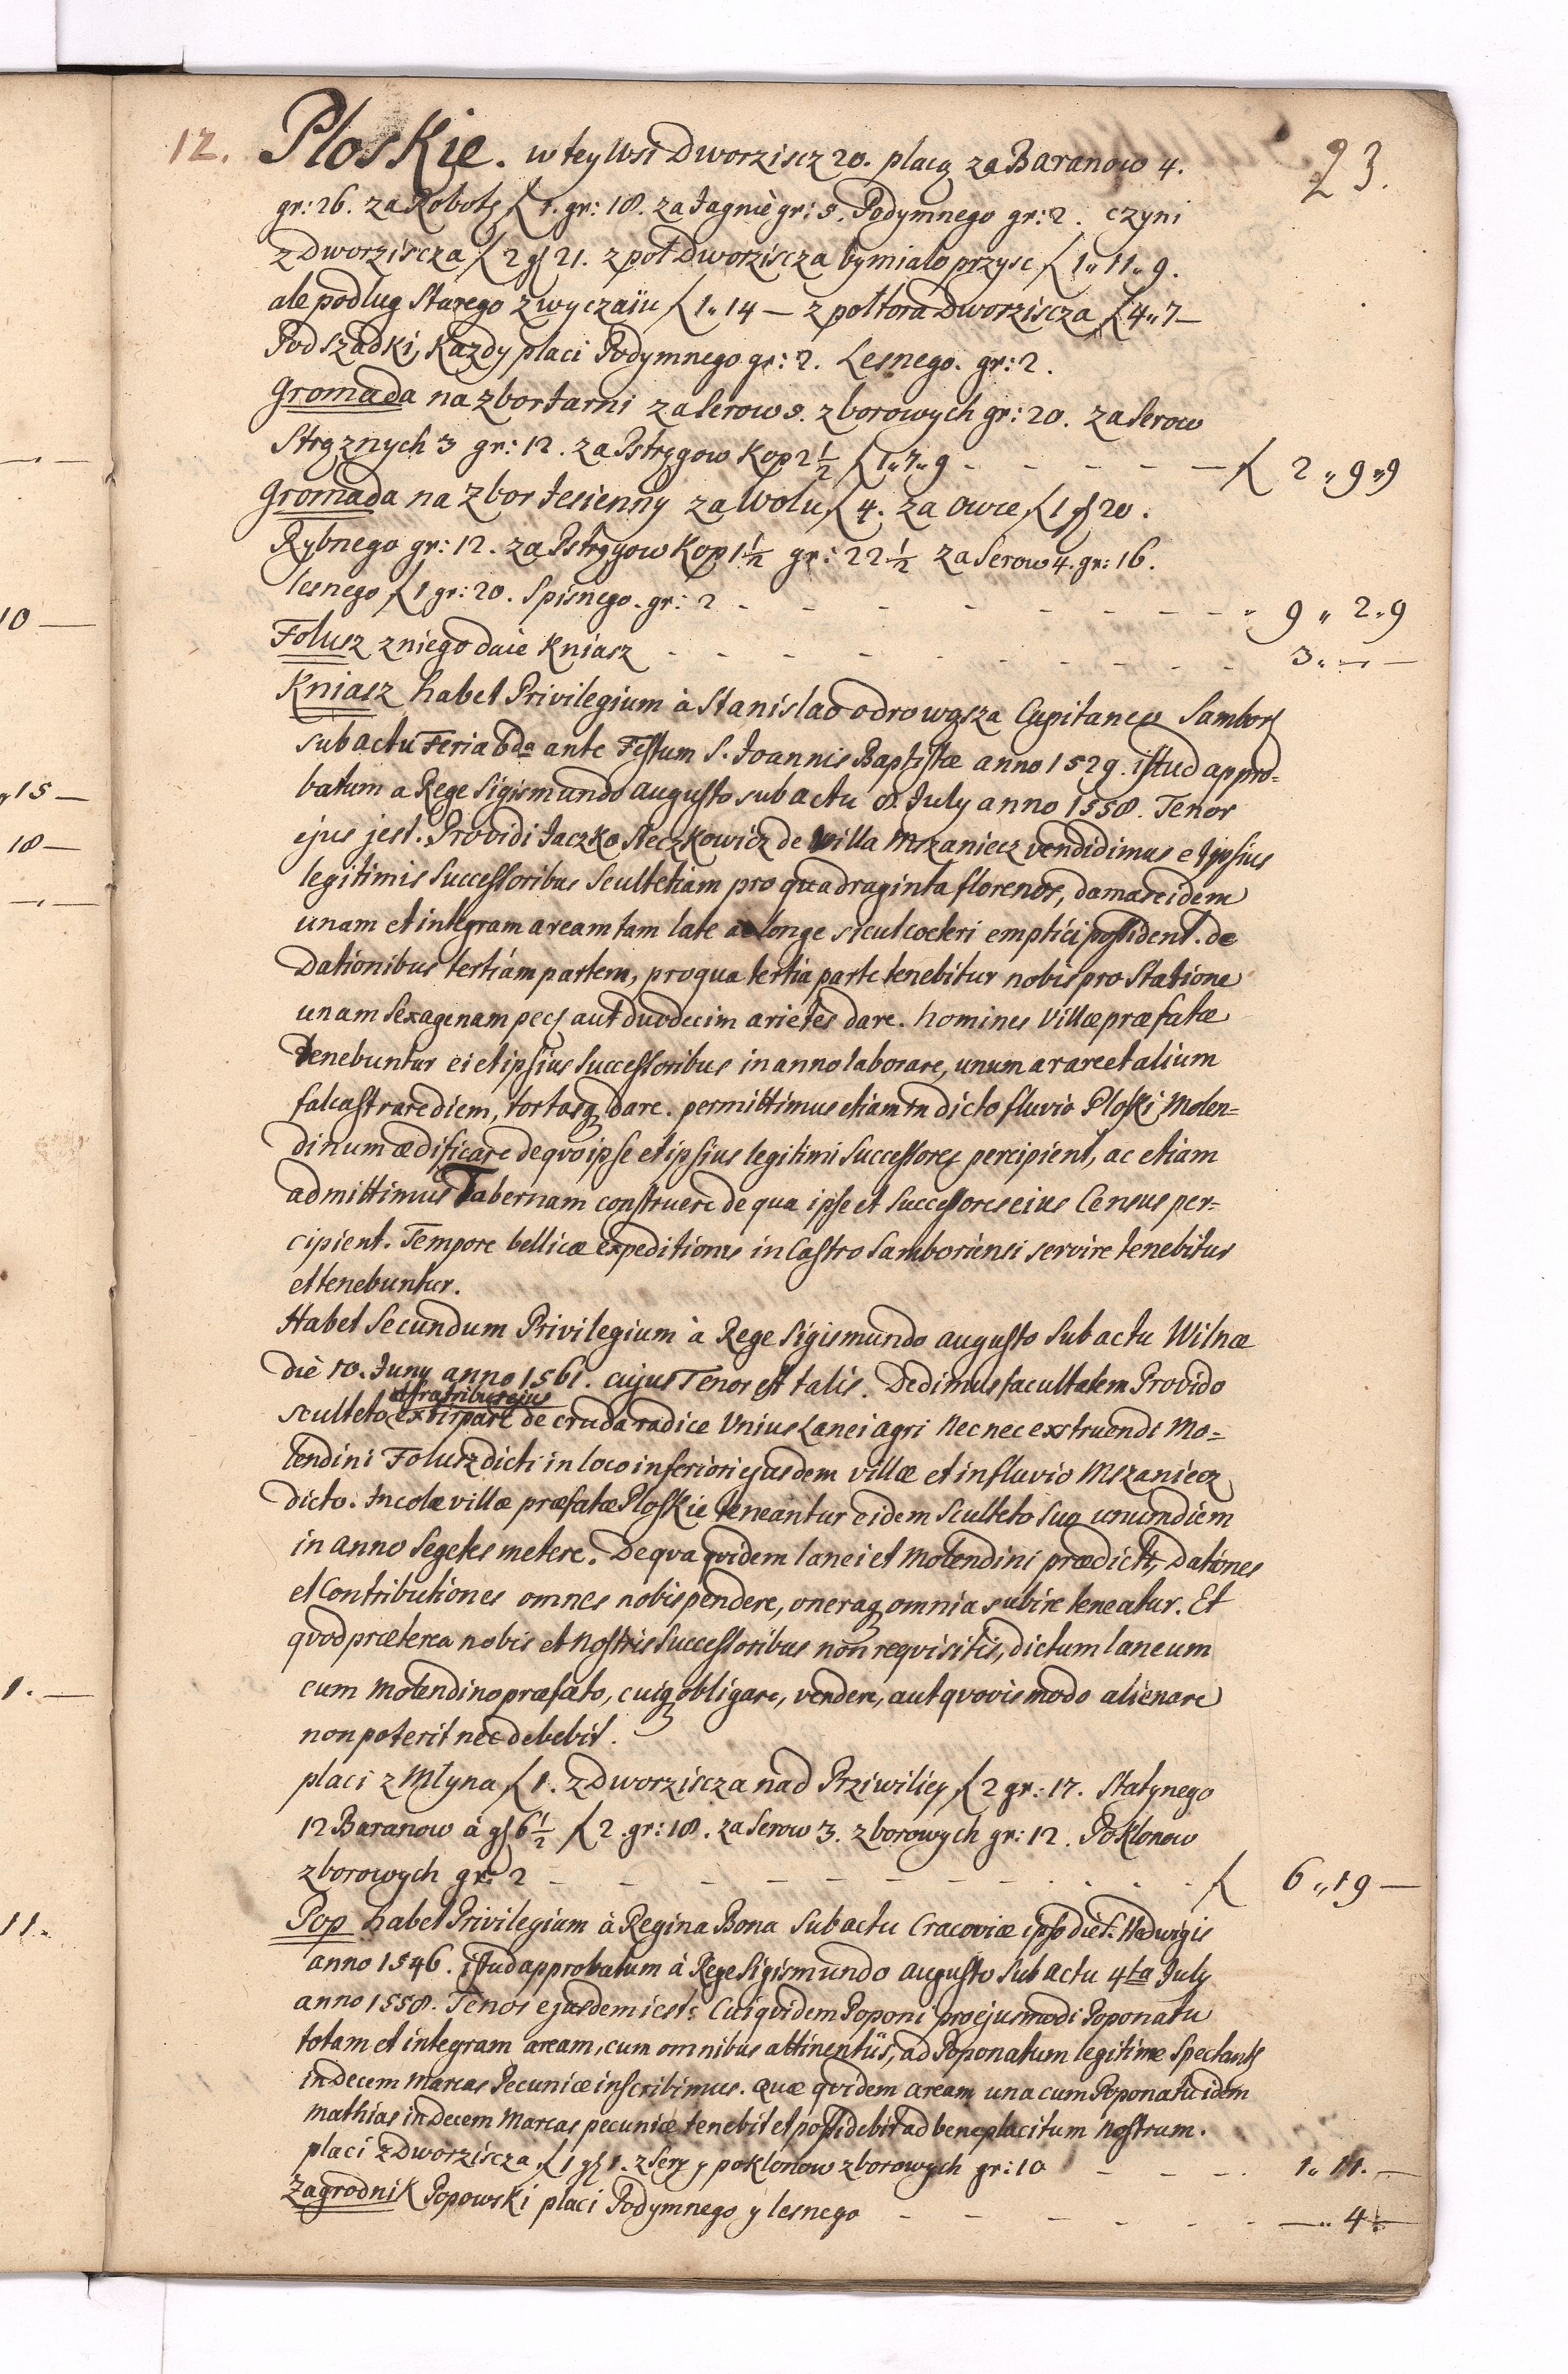 10 —
15 —
18 —
1. —
11.
12.
23.
Ploskie. w tey Wsi Dworziscz 20. placą za Baranow 4.
gr: 26. za Robotę ƒ 1. gr: 18. za Jagnie gr: 5. Podymnego gr: 2. czyni
z Dworziscza ƒ 2 gſ 21. z poł Dworziscza by miało przysc ƒ 1„ 11„ 9.
ale podlug Starego zwyczaiu ƒ 1„ 14 — z połtora Dworziscza ƒ 4„ 7 —
Podszadki, Kazdy placi Podymnego gr: 2. Lesnego. gr: 2.
Gromada na zbor Jarni za Serow 5. zborowych gr: 20. za Serow
Strąznych 3 gr: 12. za Pstrągow Kop 2½ ƒ 1„ 7„ 9 - - - - - — ƒ 2„ 9„ 9
Gromada na Zbor Jesienny za Wolu ƒ 4. za Owce ƒ 1 gſ 20.
Rybnego gr: 12. za Pstrągow Kop 1½ gr: 22½ za Serow 4. gr: 16.
lesnego ƒ 1 gr: 20. Spisnego. gr: 2 - - - - - - - „ 9 „ 2„ 9
Folusz z niego daie Kniasz - - - - - - - - 3„ — —
Kniasz habet Privilegium à Stanislao Odrowąsza Capitaneo Samborſ
sub actu Feria 6da ante Festum S. Joannis Baptistæ anno 1529. istud appro=
batum a Rege Sigismundo Augusto sub actu 8. July anno 1558. Tenor
ejus jest. Providi Jaczko Steczkowicz de Villa Mszaniecz vendidimus et ipsius
legitimis Successoribus Scultetiam pro quadraginta florenos, damas eidem
unam et integram aream tam late ac longe sicut coeteri emptici possident. de
Dationibus tertiam partem, pro qua tertia parte tenebitur nobis pro Statione
unam Sexagenam pecſ aut duodecim arietes dare. homines Villæ præfatæ
tenebuntur ei et ipsius Successoribus in anno laborare, unum arare et alium
falcastrare diem, tortasq dare. permittimus etiam in dicto fluvio Ploski Molen=
dinum ædificare de qvo ipse et ipsius legitimi Successores percipient, ac etiam
admittimus Tabernam construere de qua ipse et Successores eius Census per=
cipient. Tempore bellicæ expeditionis in Castro Samboriensi servire tenebitur
et tenebuntur.
Habet Secundum Privilegium à Rege Sigismundo Augusto Sub actu Wilnæ
die 10. Juny anno 1561. cujus Tenor est talis. Dedimus facultatem Provido
et fratribus ejus
Sculteto extirpare de cruda radice Unius Lanei agri Nec nec exstruendi Mo=
lendini Folusz dicti in loco inferiori ejusdem villæ et in fluvio Mszaniecz
dicto. Incolæ villæ præfatæ Ploskie teneantur eidem Sculteto suo unum diem
in anno Segetes metere. De qva qvidem lanei et Molendini prædicti, Dationes
et Contributiones omnes nobis pendere, oneraq omnia subire teneatur. Et
qvod præterea nobis et Nostris Successoribus non reqvisitis, dictum laneum
cum Molendino præfato, cuiq obligare, vendere, aut qvovis modo alienare
non poterit nec debebit.
placi z Młyna ƒ 1. z Dworziscza nad Prziwiliey ƒ 2 gr: 17. Statynego
12 Baranow à gſ 6½ ƒ 2. gr: 18. za Serow 3. zborowych gr: 12. Poklonow
zborowych gr: 2 - - - - - - - - ƒ 6„ 19 —
Pop habet Privilegium à Regina Bona Sub actu Cracoviæ ipso die S. Hedwigis
anno 1546. istud approbatum à Rege Sigismundo Augusto Sub actu 4ta July
anno 1558. Tenor ejusdem iest: Cui qvidem Poponi pro ejusmodi Poponatu
totam et integram aream, cum omnibus attinentiis, ad Poponatum legitime Spectantſ
in decem marcas Pecuniæ inscribimus. Quæ qvidem aream una cum Poponatu idem
Mathias in decem Marcas pecuniæ tenebit et possidebit ad beneplacitum Nostrum.
placi z Dworziscza ƒ 1 gſ 1. z Serz y poklonow zborowych gr: 10 - - - - 1„ 11. —
Zagrodnik Popowski placi Podymnego y lesnego - - - - - - —„ 4 —